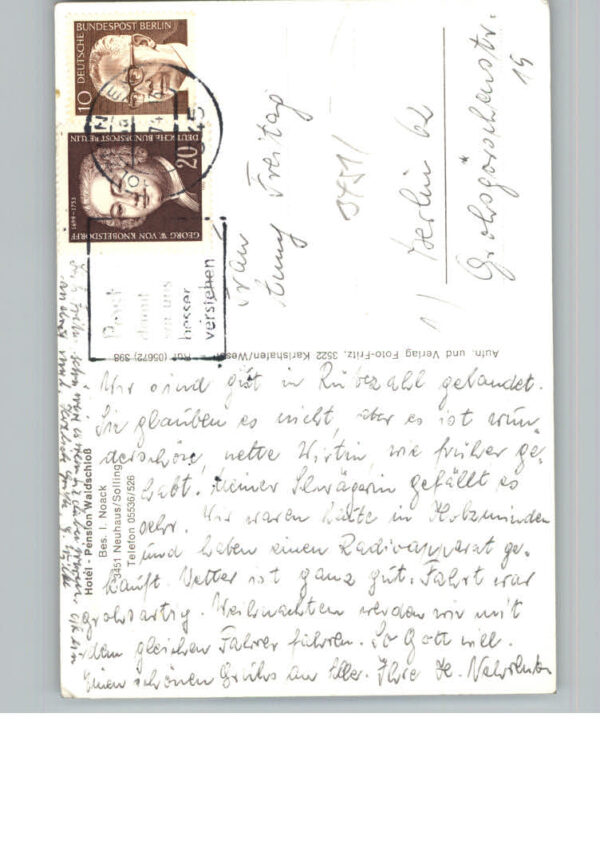 10 DEUTSCHE BUNDESPOST BERLIN
DEUTSCHE BUNDESPOST BERLIN
20
GEORG W. VON KNOBELSDORFF
1699-1753
45
damit
wir uns
besser
verstehen
Frau
Freitag
3451/
1/ Berlin 62
Großgörschenstr.
19
Aufn. und Verlag Foto-Fritz, 3522 Karlshafen/Weser Ruf (05672) 398
Hotel - Pension Waldschloß
Bes. I. Noack
3451 Neuhaus/Solling
Telefon 05536/526
Wir sind gut in Rübezahl gelandet.
Sie glauben es nicht, aber es ist wun-
derschöne, nette Wirtin, wie früher ge-
habt. Meiner Schwägerin gefällt es
sehr. Wir waren heute in Holzminden
und haben einen Radioapparat ge-
kauft. Wetter ist ganz gut. Fahrt war
großartig. Weihnachten werden wir mit
dem gleichen Fahrer führen. So Gott will.
Einen schönen Gruß an Alle. Ihre